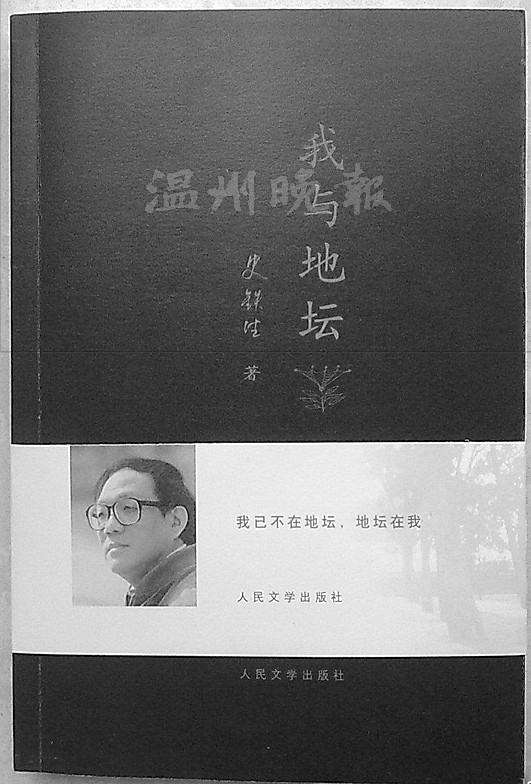 我与地坛
温州晚報
史铁生 著
我已不在地坛，地坛在我
人民文学出版社
人民文学出版社